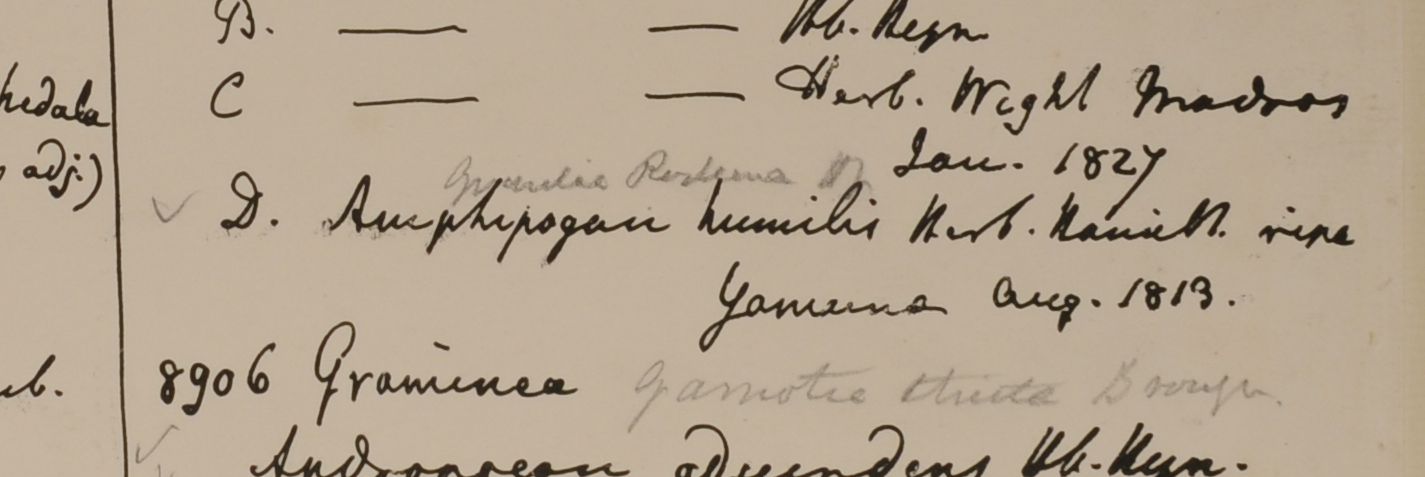 B. — — Hb. Heyn
hedala C — — Herb. Wight Madras
adj.) Jan. 1827
D. Amphipogon humilis Herb. Hamilt. ripa
Yamuna Aug. 1813.
ub. 8906 Graminea Garnotia stricta Brongn.
Andropogon Hb. Heyn.